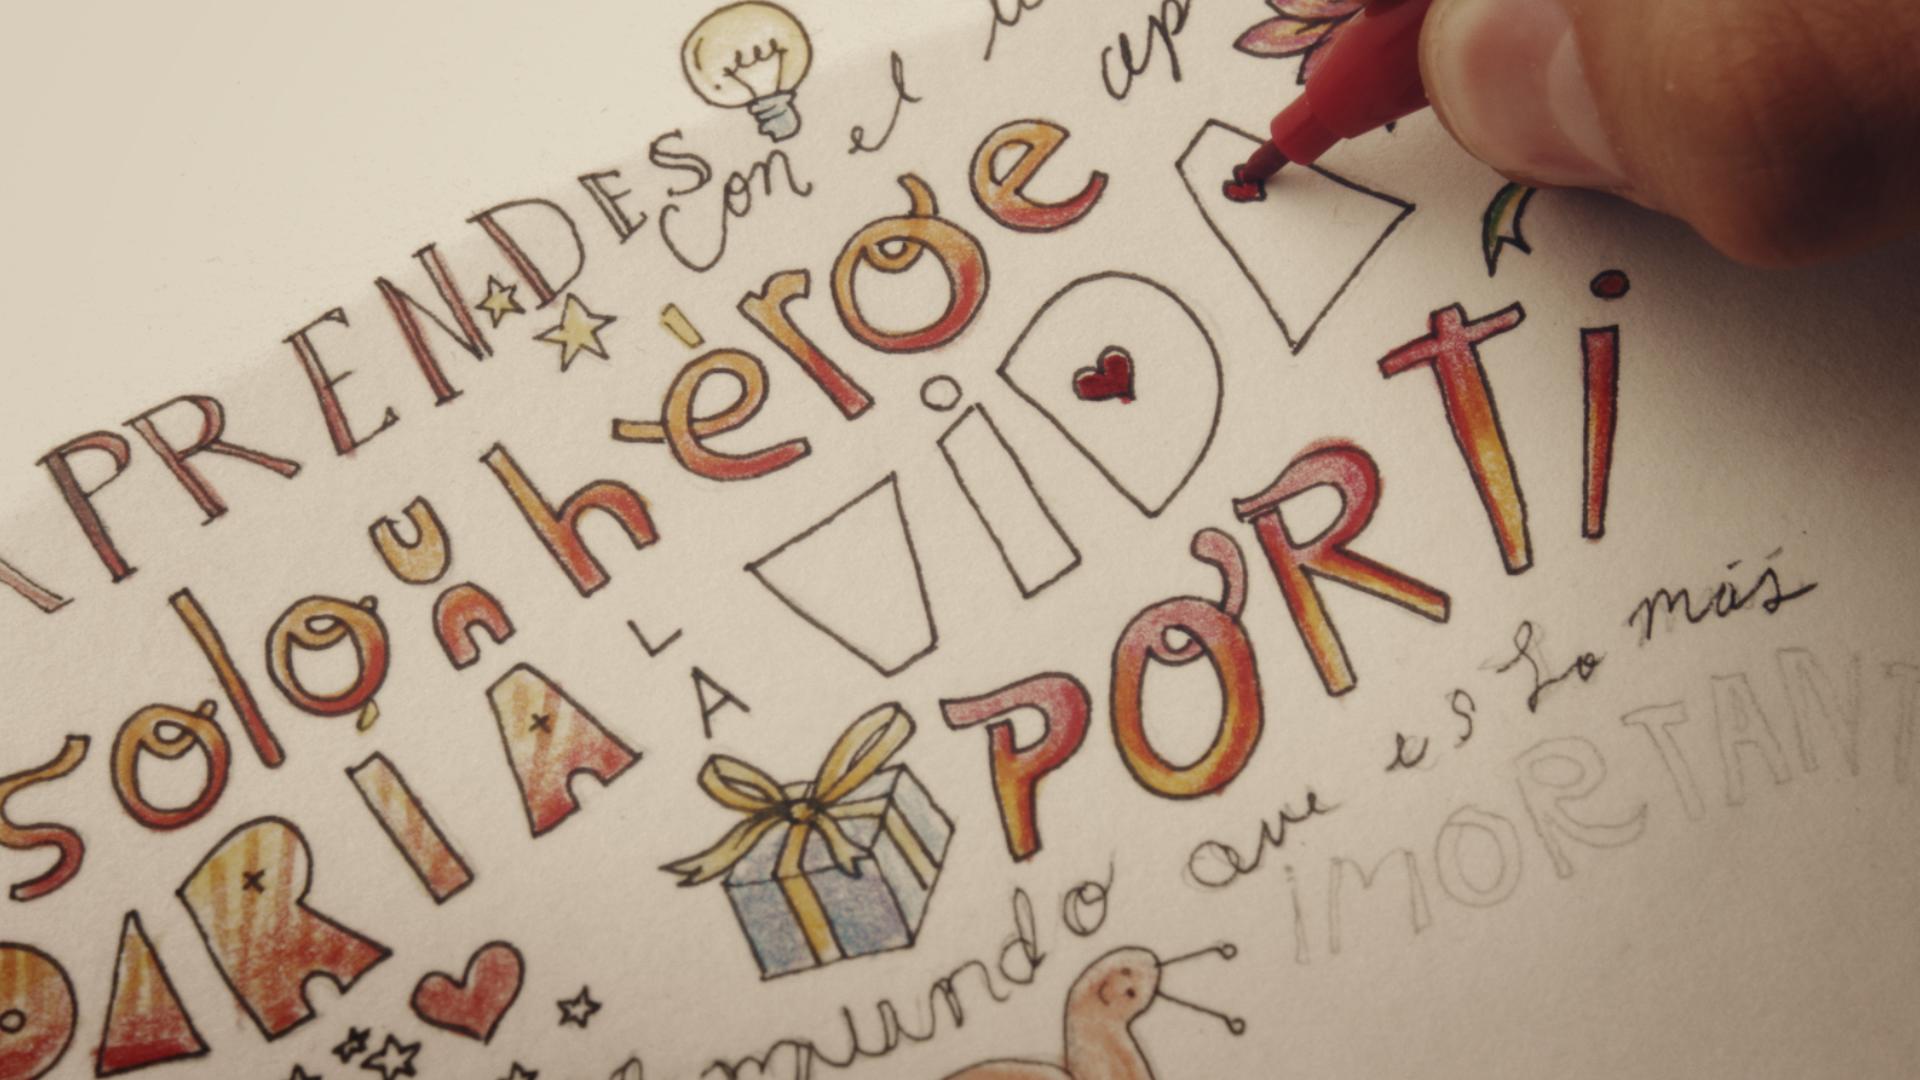 ap
APRENDES con el
solo un héroe
DARIA LA ViDA
POR Ti
mundo que es Lo más
iMORTANT